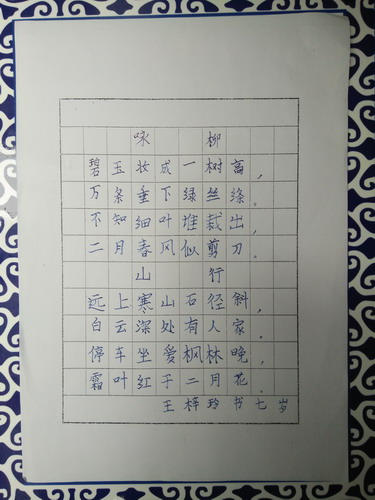 咏柳
碧玉妆成一树高，
万条垂下绿丝绦。
不知细叶谁裁出，
二月春风似剪刀。
山行
远上寒山石径斜，
白云深处有人家。
停车坐爱枫林晚，
霜叶红于二月花。
王梓玲书七岁